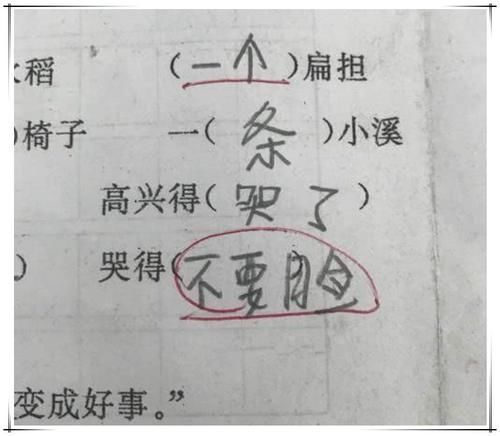 水稻 (一个)扁担
)椅子 一(条)小溪
高兴得(哭了)
) 哭得(不要脸
变成好事。”